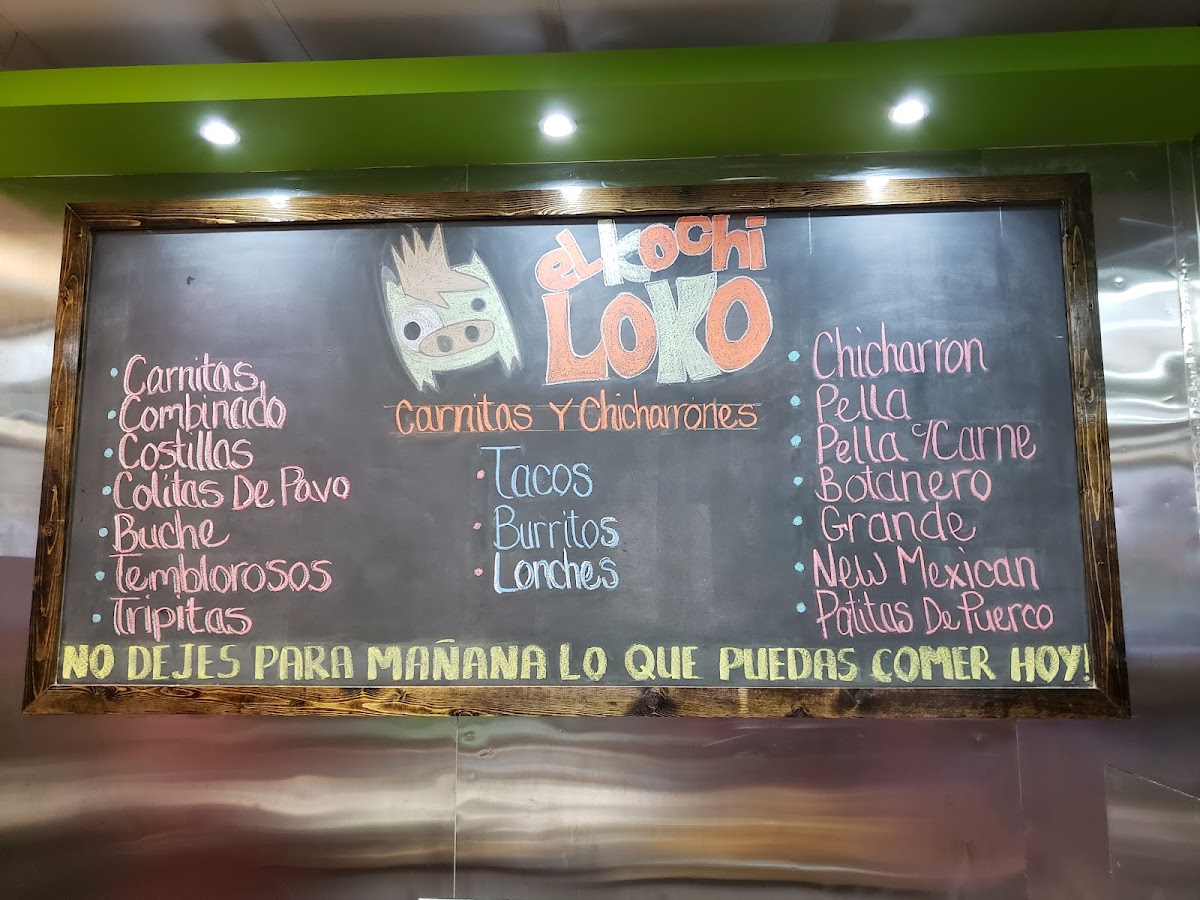 el Kochi
Loko
Carnitas Y Chicharrones
Carnitas
Combinado
Costillas
Colitas De Pavo
Buche
Temblorosos
Tripitas
Tacos
Burritos
Lonches
Chicharron
Pella
Pella c/Carne
Botanero
Grande
New Mexican
Patitas De Puerco
NO DEJES PARA MAÑANA LO QUE PUEDAS COMER HOY!